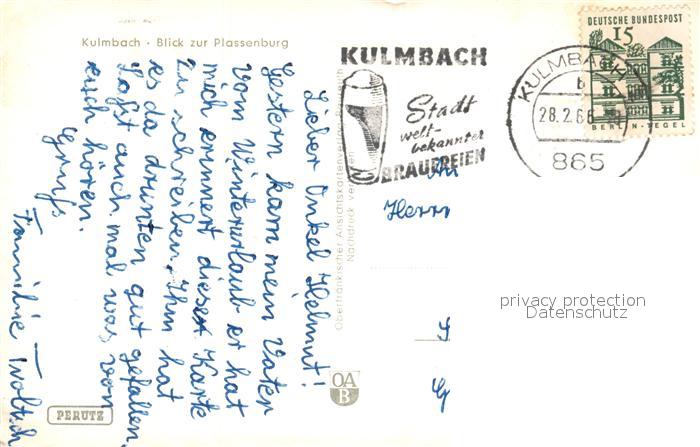 Kulmbach · Blick zur Plassenburg
KULMBACH
Stadt
welt-
bekannter
BRAUEREIEN
DEUTSCHE BUNDESPOST
15
BERLIN-TEGEL
KULMBACH
b
28.2.66
865
An
Herrn
privacy protection
Datenschutz
Lieber Onkel Helmut!
Gestern kam mein Vater
vom Winterurlaub er hat
mich erinnert diese Karte
zu schreiben, Ihm hat
es da drunten gut gefallen,
Laßt auch mal was von
euch hören.
Gruß
Familie
Oberfränkischer Ansichtskartenver
Nachdruck ver
OA
B
PERUTZ